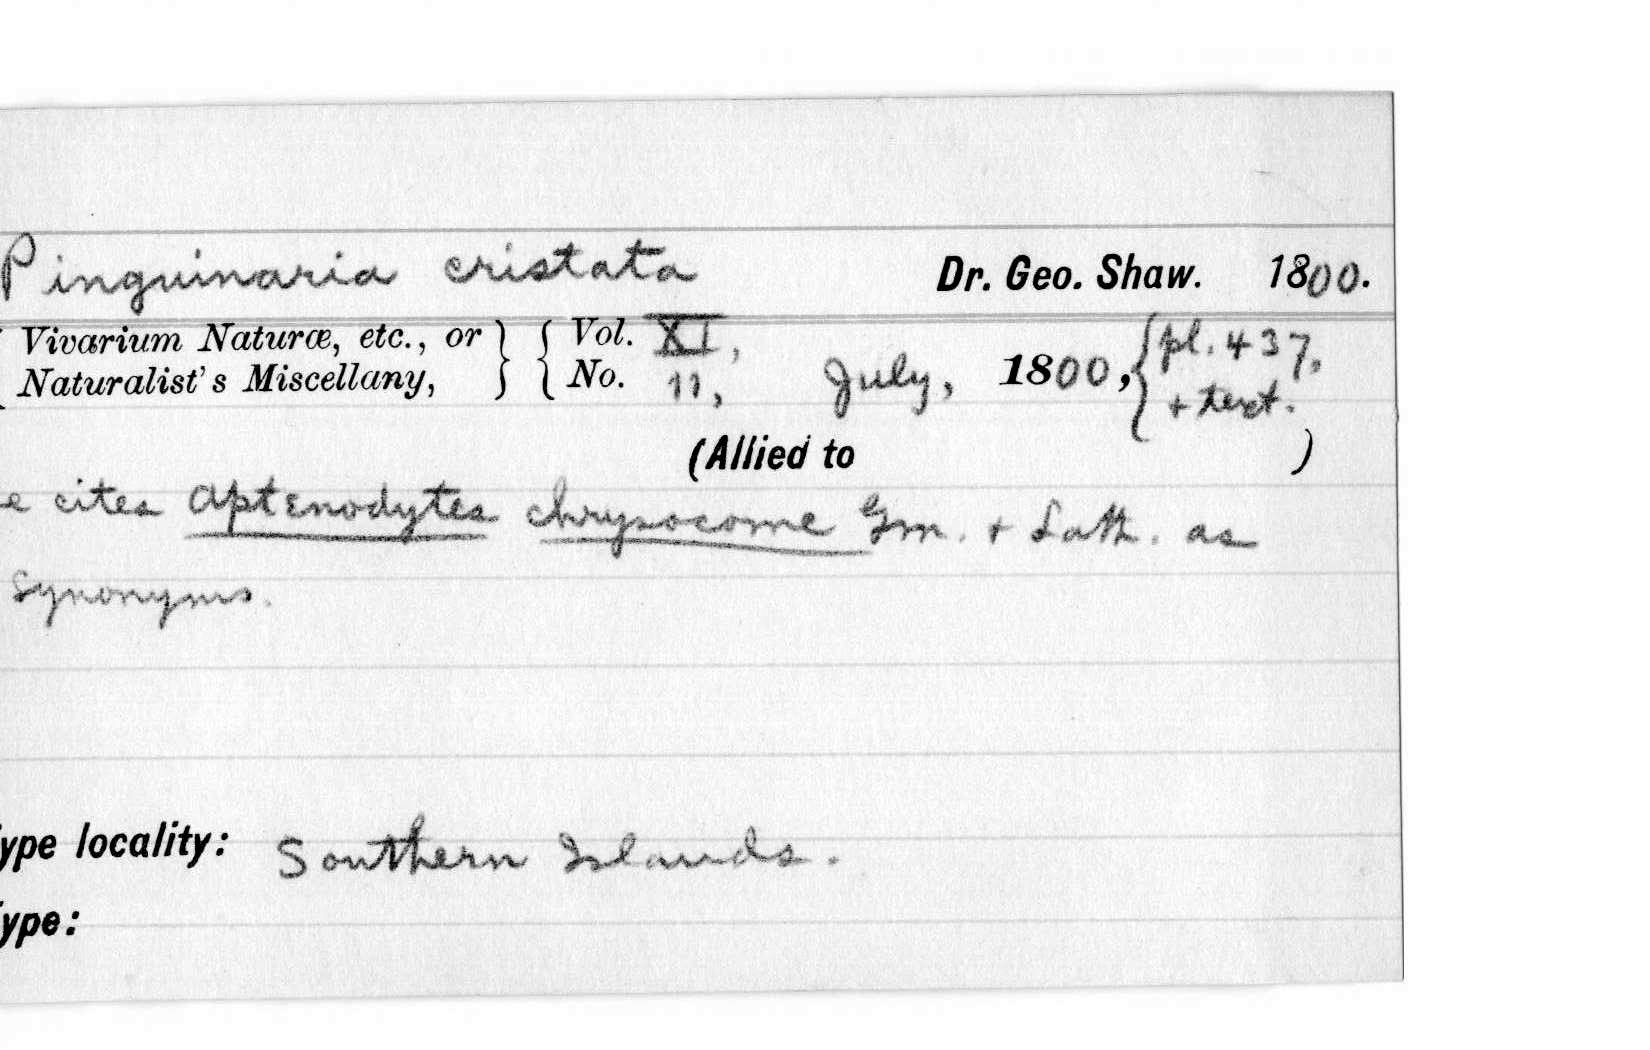 Pinguinaria cristata Dr. Geo. Shaw. 1800.
Vivarium Naturæ, etc., or } { Vol. XI,
Naturalist's Miscellany, No. 11, July, 1800, { pl. 437,
+ text.
(Allied to )
e cites Aptenodytes chrysocome Gm. + Lath. as
synonyms.
ype locality: Southern Islands.
ype: